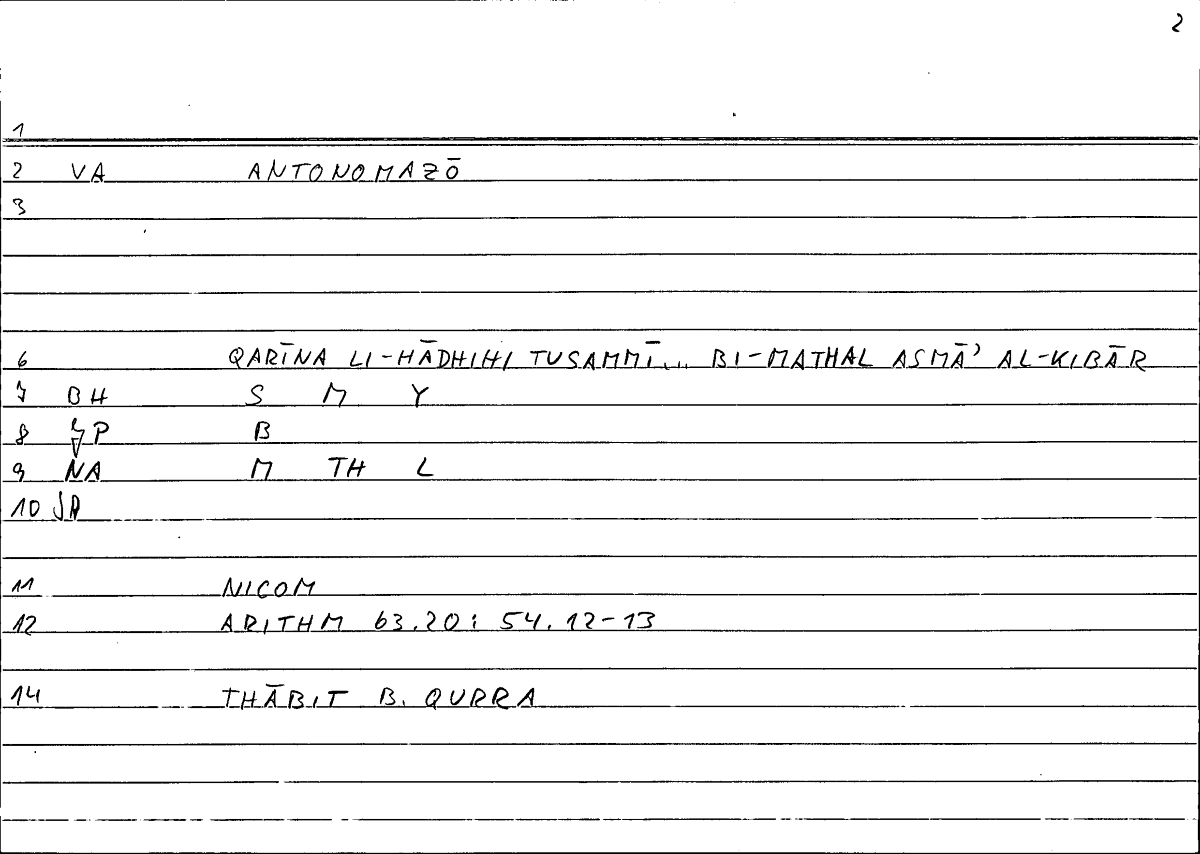 2
1
2 VA ANTONOMAZŌ
3
6 QARĪNA LI-HĀDHIHI TUSAMMĪ... BI-MATHAL ASMĀ' AL-KIBĀR
7 BH S M Y
8 P B
9 NA M TH L
10
11 NICOM
12 ARITHM 63.20: 54.12-13
14 THĀBIT B. QURRA